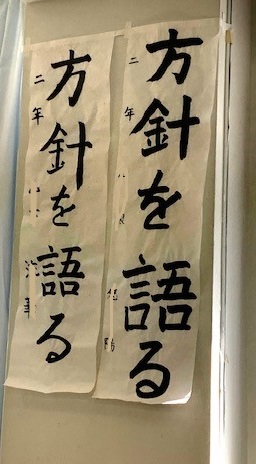 方針を語る
二年
方針を語る
二年